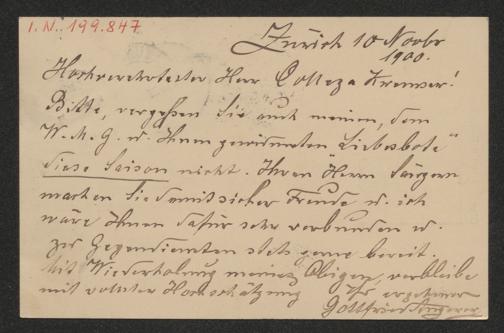 I.N. 199.847
Zürich 10 Novbr
1900.
Hochverehrtester Herr College Kremser!
Bitte, vergessen Sie auch meinen, dem
W. M. G. u. Ihnen gewidmeten "Liebesbote"
diese Saison nicht. Ihren Herrn Sängern
machen Sie damit sicher Freude u. ich
wäre Ihnen dafür sehr verbunden u.
zu Gegendiensten stets gerne bereit.
Mit Wiederholung meines Obigen, verbleibe
mit vollster Hochschätzung Ihr ergebener
Gottfried Angerer